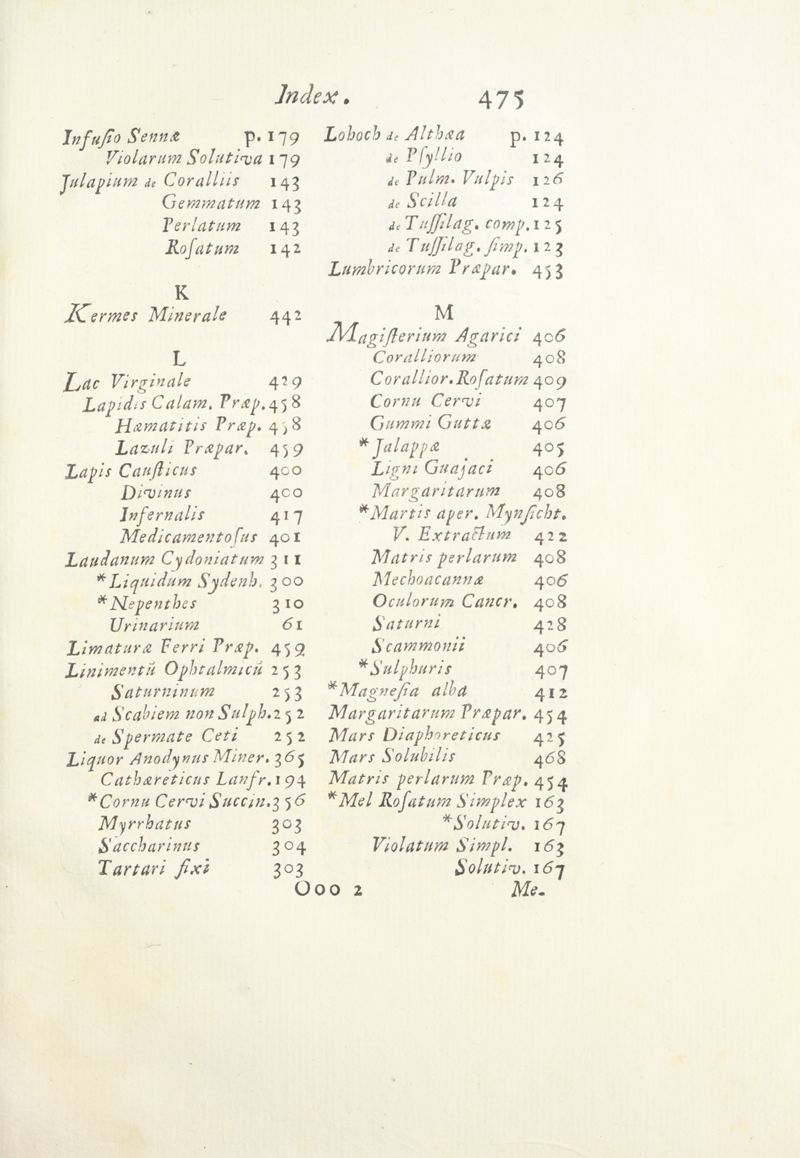 Index. 475
Infuſio Sennæ p. 179
Violarum Solutiva 179
Julapium de Coralliis 143
Gemmatum 143
Perlatum 143
Roſatum 142
K
Kermes Minerale 442
L
Lac Virginale 429
Lapidis Calam. Præp. 458
Hæmatitis Præp. 458
Lazuli Præpar. 459
Lapis Cauſticus 400
Divinus 400
Infernalis 417
Medicamentoſus 401
Laudanum Cydoniatum 311
*Liquidum Sydenh. 300
*Nepenthes 310
Urinarium 61
Limaturæ Ferri Præp. 459
Linimentū Ophtalmicū 253
Saturninum 253
ad Scabiem non Sulph. 252
de Spermate Ceti 252
Liquor Anodynus Miner. 365
Cathæreticus Lanfr. 194
*Cornu Cervi Succin. 356
Myrrhatus 303
Saccharinus 304
Tartari fixi 303
Lohoch de Althæa p. 124
de Pſyllio 124
de Pulm. Vulpis 126
de Scilla 124
de Tuſſilag. comp. 125
de Tuſſilag. ſimp. 123
Lumbricorum Præpar. 453
M
Magiſterium Agarici 406
Coralliorum 408
Corallior. Roſatum 409
Cornu Cervi 407
Gummi Guttæ 406
*Jalappæ 405
Ligni Guajaci 406
Margaritarum 408
*Martis aper. Mynſicht.
V. Extractum 422
Matris perlarum 408
Mechoacannæ 406
Oculorum Cancr. 408
Saturni 428
Scammonii 406
*Sulphuris 407
*Magneſia alba 412
Margaritarum Præpar. 454
Mars Diaphoreticus 425
Mars Solubilis 468
Matris perlarum Præp. 454
*Mel Roſatum Simplex 163
*Solutiv. 167
Violatum Simpl. 163
Solutiv. 167
Ooo 2 Me-